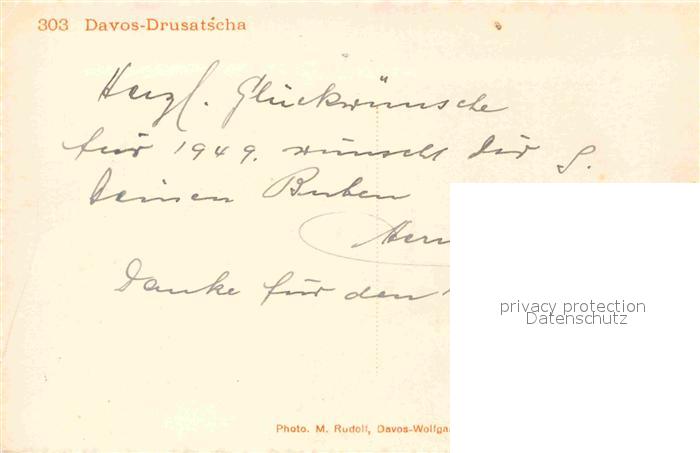 303 Davos-Drusatscha
Herzl. Glückwünsche
für 1949. wünscht Dir &
Deinen Buben
Danke für den
privacy protection
Datenschutz
Photo. M. Rudolf, Davos-Wolfga